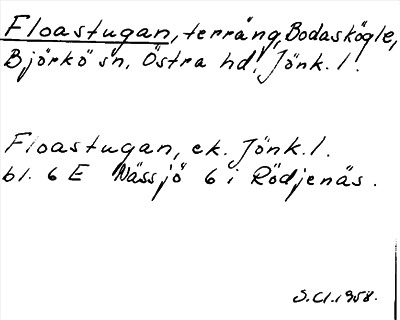 Floastugan, terräng, Bodaskögle,
Björkö sn, Östra hd, Jönk. l.
Floastugan, ek. Jönk. l.
bl. 6 E Nässjö 6 i Rödjenäs.
S.Cl. 1958.